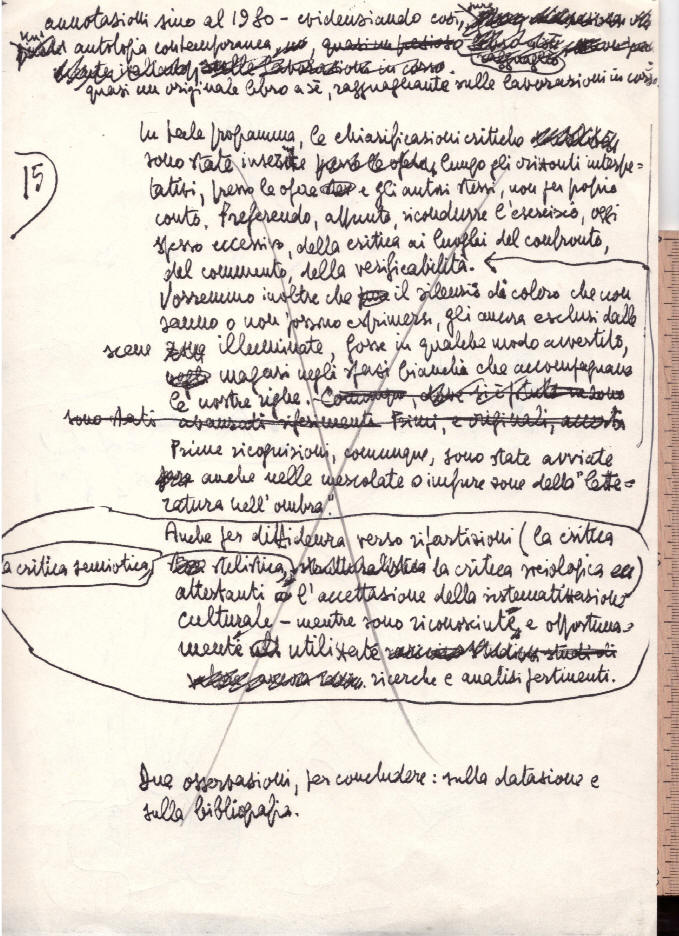 annotazioni sino al 1980 - evidenziando così,
antologia contemporanea,
quasi un originale libro a sè, ragguagliante sulle lavorazioni in corso.
15
In tale programma, le chiarificazioni critiche
sono state inserite lungo gli orizzonti interpre=
tativi, presso le opere e gli autori stessi, non per proprio
conto. Preferendo, appunto, ricondurre l'esercizio, oggi
spesso eccessivo, della critica ai luoghi del confronto,
del commento, della verificabilità.
Vorremmo inoltre che il silenzio di coloro che non
sanno o non possono esprimersi, gli ancora esclusi dalle
scene illuminate, fosse in qualche modo avvertito,
magari negli spazi bianchi che accompagnano
le nostre righe.
sono stati
Prime ricognizioni, comunque, sono state avviate
anche nelle mescolate o impure zone della "lette=
ratura nell'ombra".
Anche per diffidenza verso ripartizioni (la critica
la critica semiotica, stilistica, la critica sociologica ecc)
attestanti l'accettazione della sistematizzazione
culturale - mentre sono riconosciute, e opportuna=
mente utilizzate
ricerche e analisi pertinenti.
Due osservazioni, per concludere: sulla datazione e
sulla bibliografia.